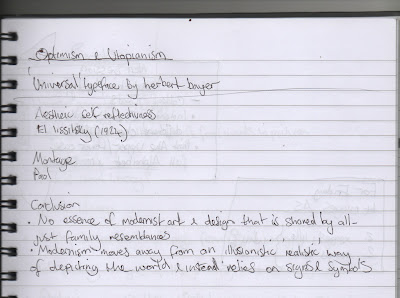 Optimism & Utopianism
'Universal' typeface by herbert bayer
Aestheic self reflectiveness
El lissitsky (1924)
Montage
Conclusion
• No essence of modernist art & design that is shared by all-
just family resemblances
• Modernism moves away from an 'illusionistic', 'realistic' way
of depicting the world & instead relies on signs & symbols